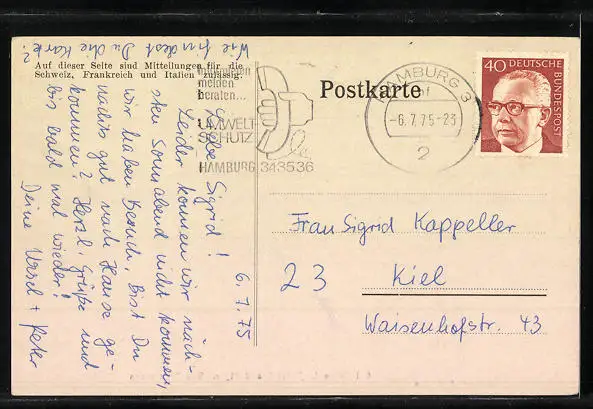 Wie findest Du die Karte?
Auf dieser Seite sind Mitteilungen für die
Schweiz, Frankreich und Italien zulässig.
6.7.75
Liebe Sigrid!
Leider können wir näch-
sten Sonnabend nicht kommen,
wir haben Besuch. Bist Du
nachts gut nach Hause ge-
kommen? Herzl. Grüße und
bis bald mal wieder!
Deine Ursel + Peter
melden
beraten...
UMWELT
SCHUTZ
HAMBURG 343536
Postkarte
HAMBURG 3
-6.7.75-23
2
40 DEUTSCHE
BUNDESPOST
Frau Sigrid Kappeller
23 Kiel
Waisenhofstr. 43